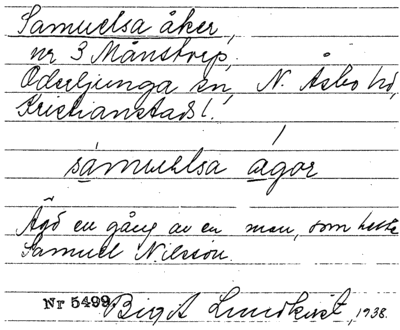 Samuelsa åker,
nr 3 Månstorp,
Oderljunga sn, N. Åsbo hd,
Kristianstads l.
samuelsa agor
Ägd en gång av en man, som hette
Samuel Nilsson.
Nr 5499. Birgit Lundkvist, 1938.